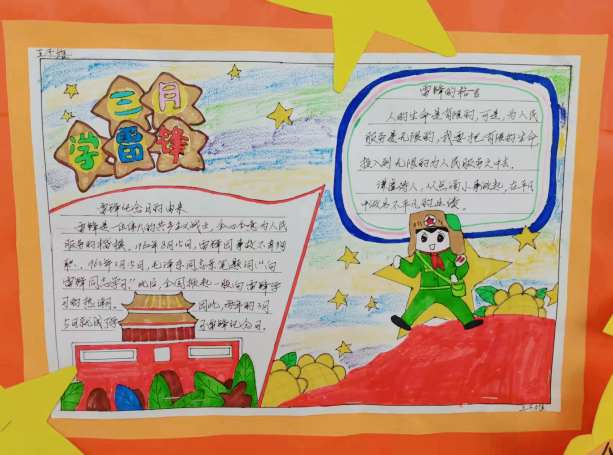 王子雄
三月
学雷锋
雷锋的格言
人的生命是有限的,可是,为人民
服务是无限的,我要把有限的生命,
投入到无限的为人民服务之中去。
谦虚待人,从点滴小事做起,在平凡
中做出不平凡的业绩。
雷锋纪念日的由来
雷锋是一位伟大的共产主义战士,全心全意为人民
服务的楷模。1962年8月15日,雷锋因事故不幸殉
职。1963年3月5日,毛泽东同志亲笔题词:“向
雷锋同志学习”此后,全国掀起一股向雷锋学
习的热潮。因此,每年的3月
5日就成了学习雷锋纪念日。
王子雄